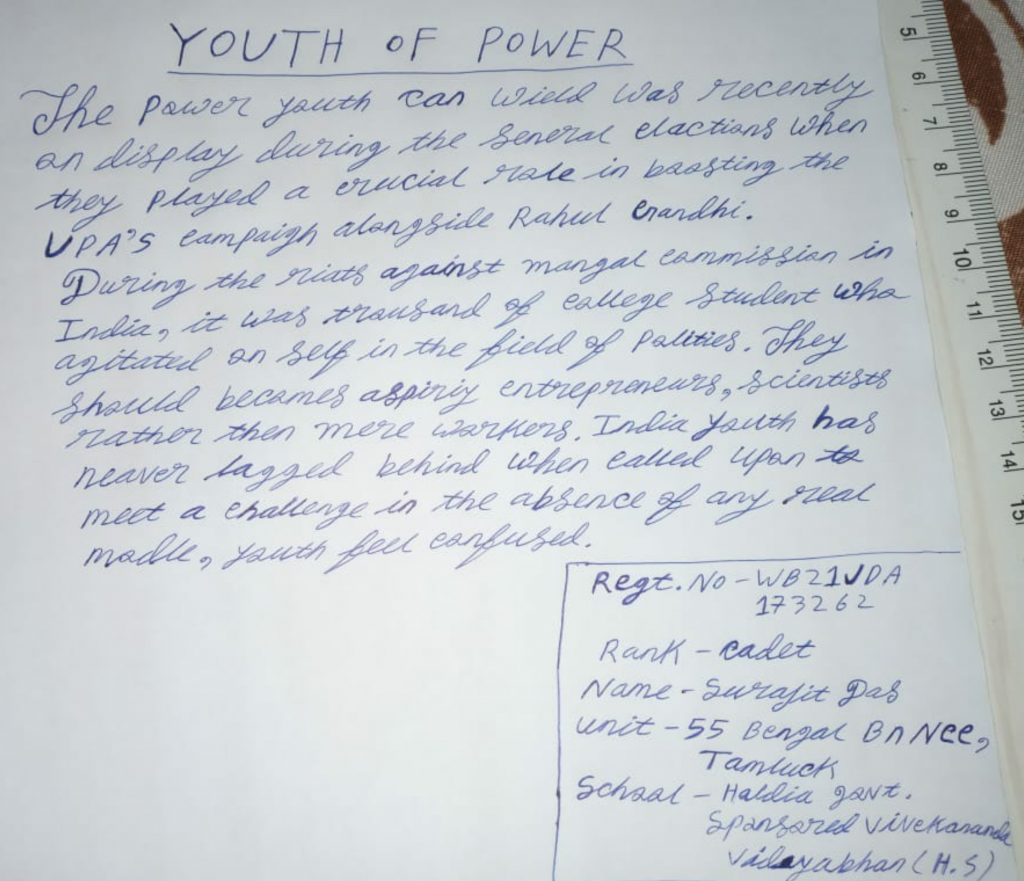 YOUTH OF POWER
The Power youth can wield was recently
on display during the General elactions when
they Played a crucial role in boosting the
UPA'S campaign alongside Rahul Gandhi.
During the riots against mangal commission in
India, it was trousand of college student who
agitated on self in the field of Polities. They
should becomes aspiriy entrepreneurs, scientists
rather then mere workers. India youth has
neaver lagged behind when called upon to
meet a challenge in the absence of any real
modle, youth feel confused.
Regt. No - WB21JDA
173262
Rank - cadet
Name - Surajit Das
unit - 55 Bengal Bn NCC,
Tamluck
School - Haldia govt.
Sponsored Vivekananda
Vidayabhan (H.S)
5
6
7
8
9
10
11
12
13
14
15